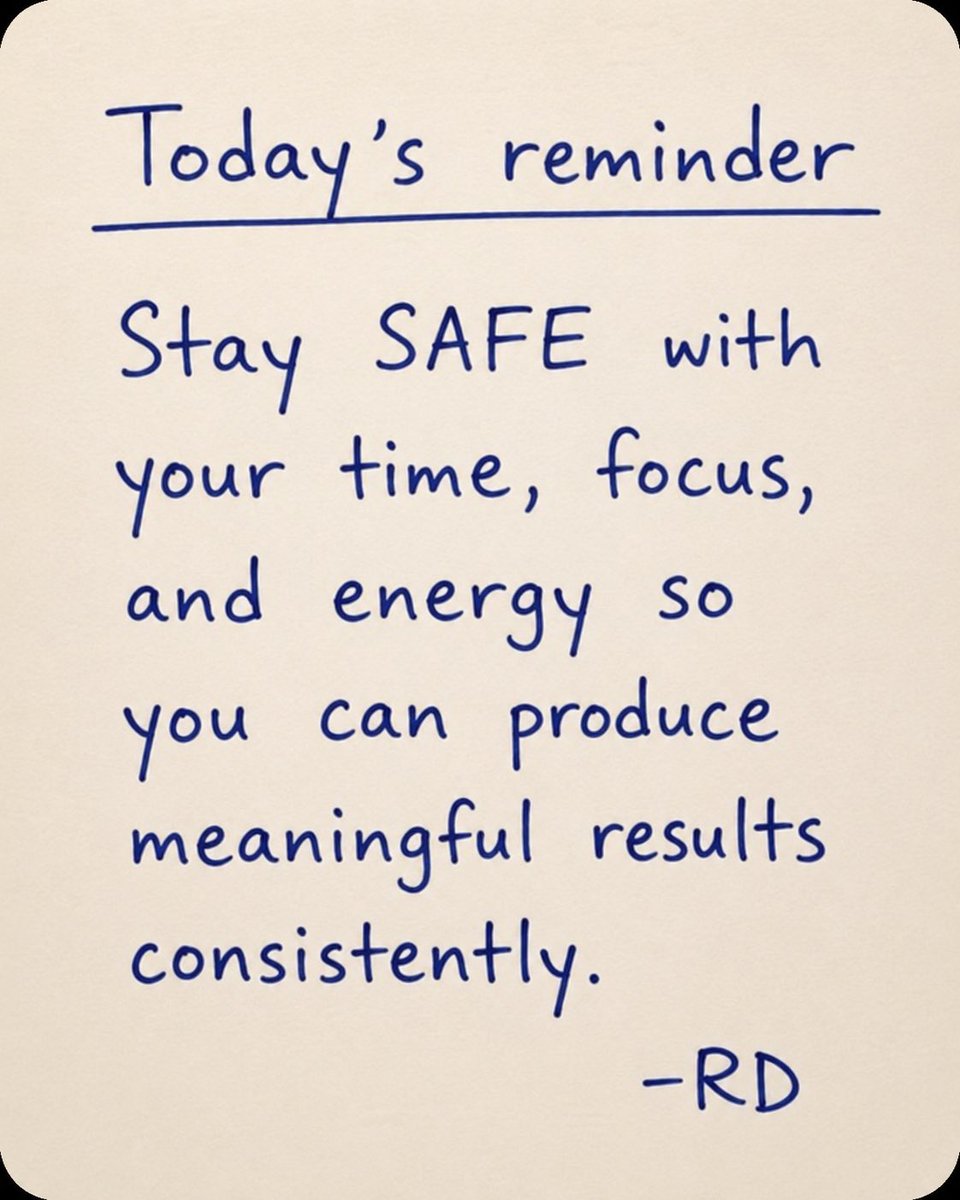 Today's reminder
Stay SAFE with
your time, focus,
and energy so
you can produce
meaningful results
consistently.
-RD